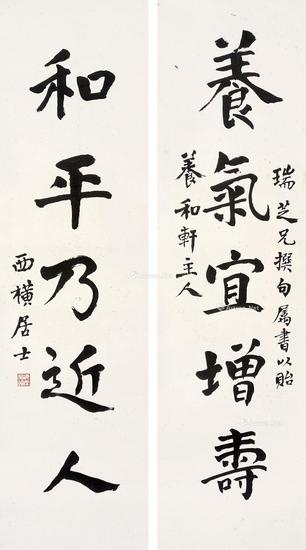 養氣宜增壽
瑞芝兄撰句屬書以貽
養和軒主人
和平乃近人
西橫居士